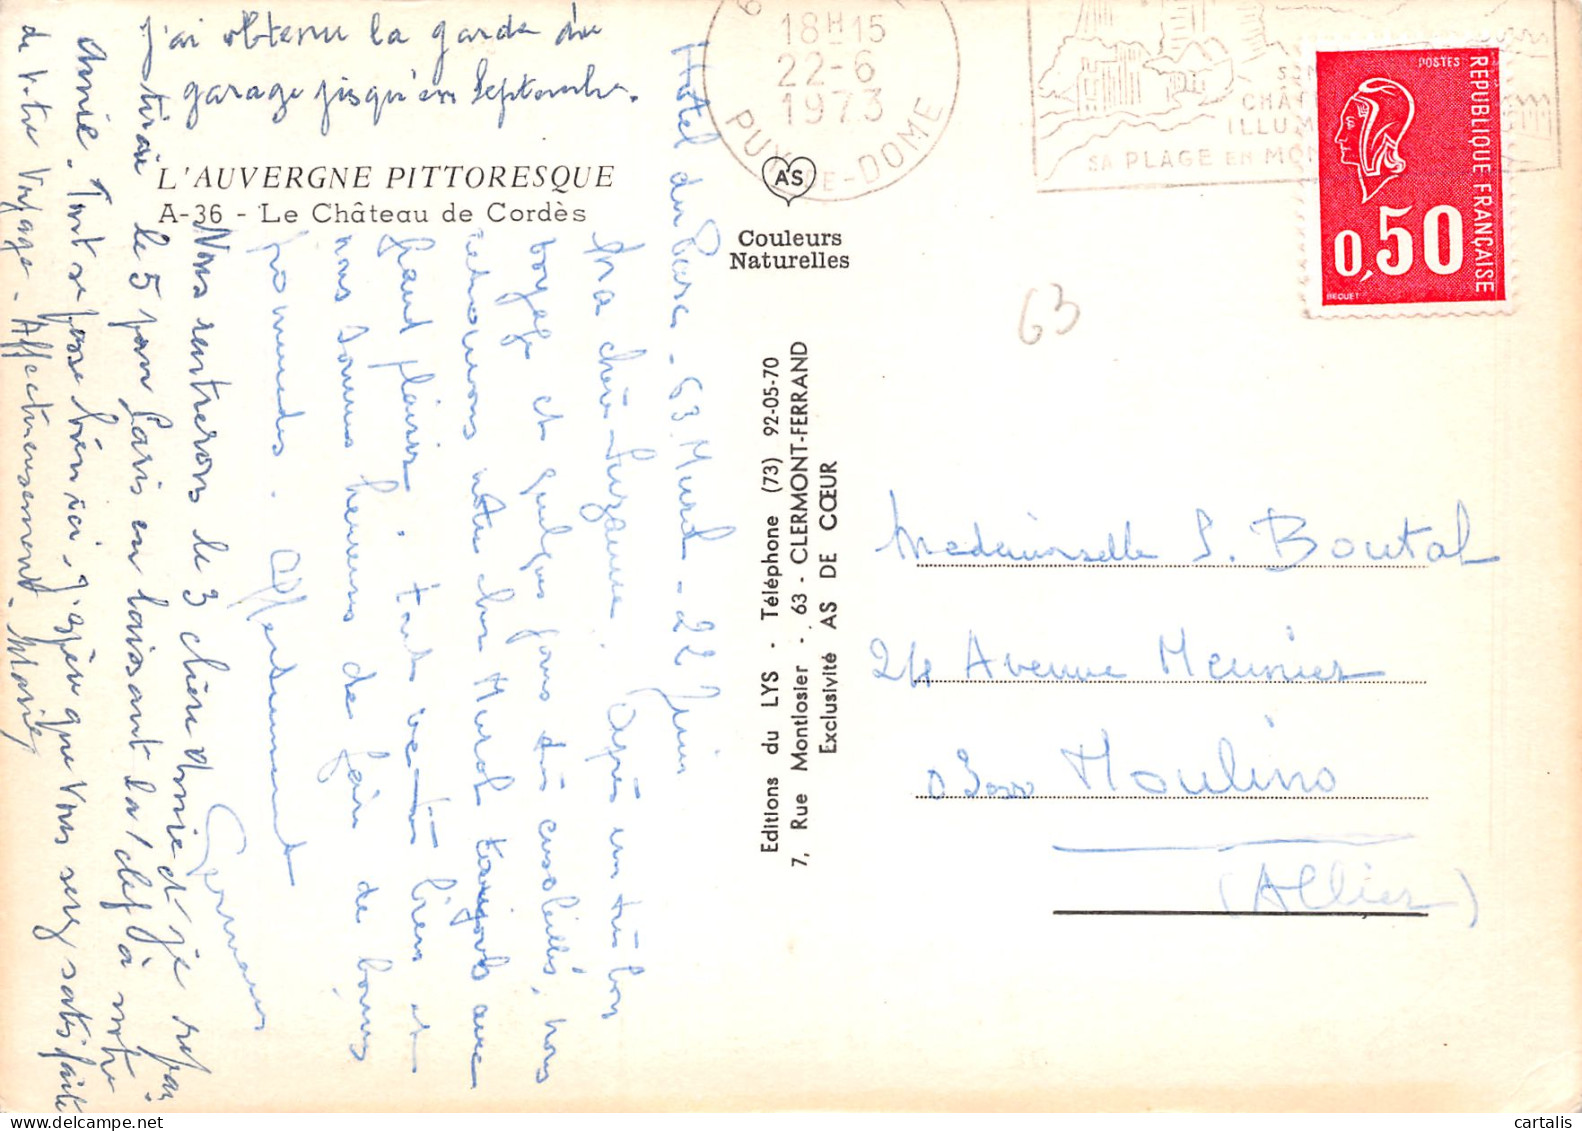 j'ai obtenu la garde du
garage jusqu'en Septembre.
L'AUVERGNE PITTORESQUE
A-36 - Le Château de Cordès
18H15
22-6
1973
PUY-DE-DOME
CHÂT
ILLUM
SA PLAGE EN MON
POSTES
REPUBLIQUE FRANÇAISE
0,50
BEQUET
AS
Couleurs
Naturelles
63
Editions du LYS - Téléphone (73) 92-05-70
7, Rue Montlosier - 63 - CLERMONT-FERRAND
Exclusivité AS DE CŒUR
Mademoiselle S. Boutal
24 Avenue Meunier
03000 Moulins
(Allier)
Hôtel du Parc - 63 Murol - 22 Juin
Ma chère Suzanne. Après un très bon
voyage et quelques jours très ensoleillés, nous
retrouvons notre cher Murol toujours avec
grand plaisir. tout va très bien et
nous sommes heureux de faire de bonnes
promenades. Affectueusement
Germaine
Nous rentrerons le 3 chère Annie et je repar
tirai le 5 pour Paris en laissant la clef à notre
Annie. Tout se passe bien ici, j'espère que vous serez satisfaite
de votre voyage - Affectueusement -